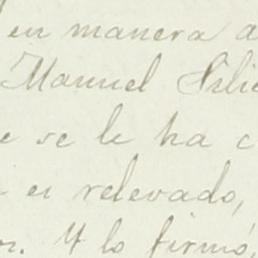 en manera a
Manuel Silie
e se le ha c
en relevado,
Y lo firmó,